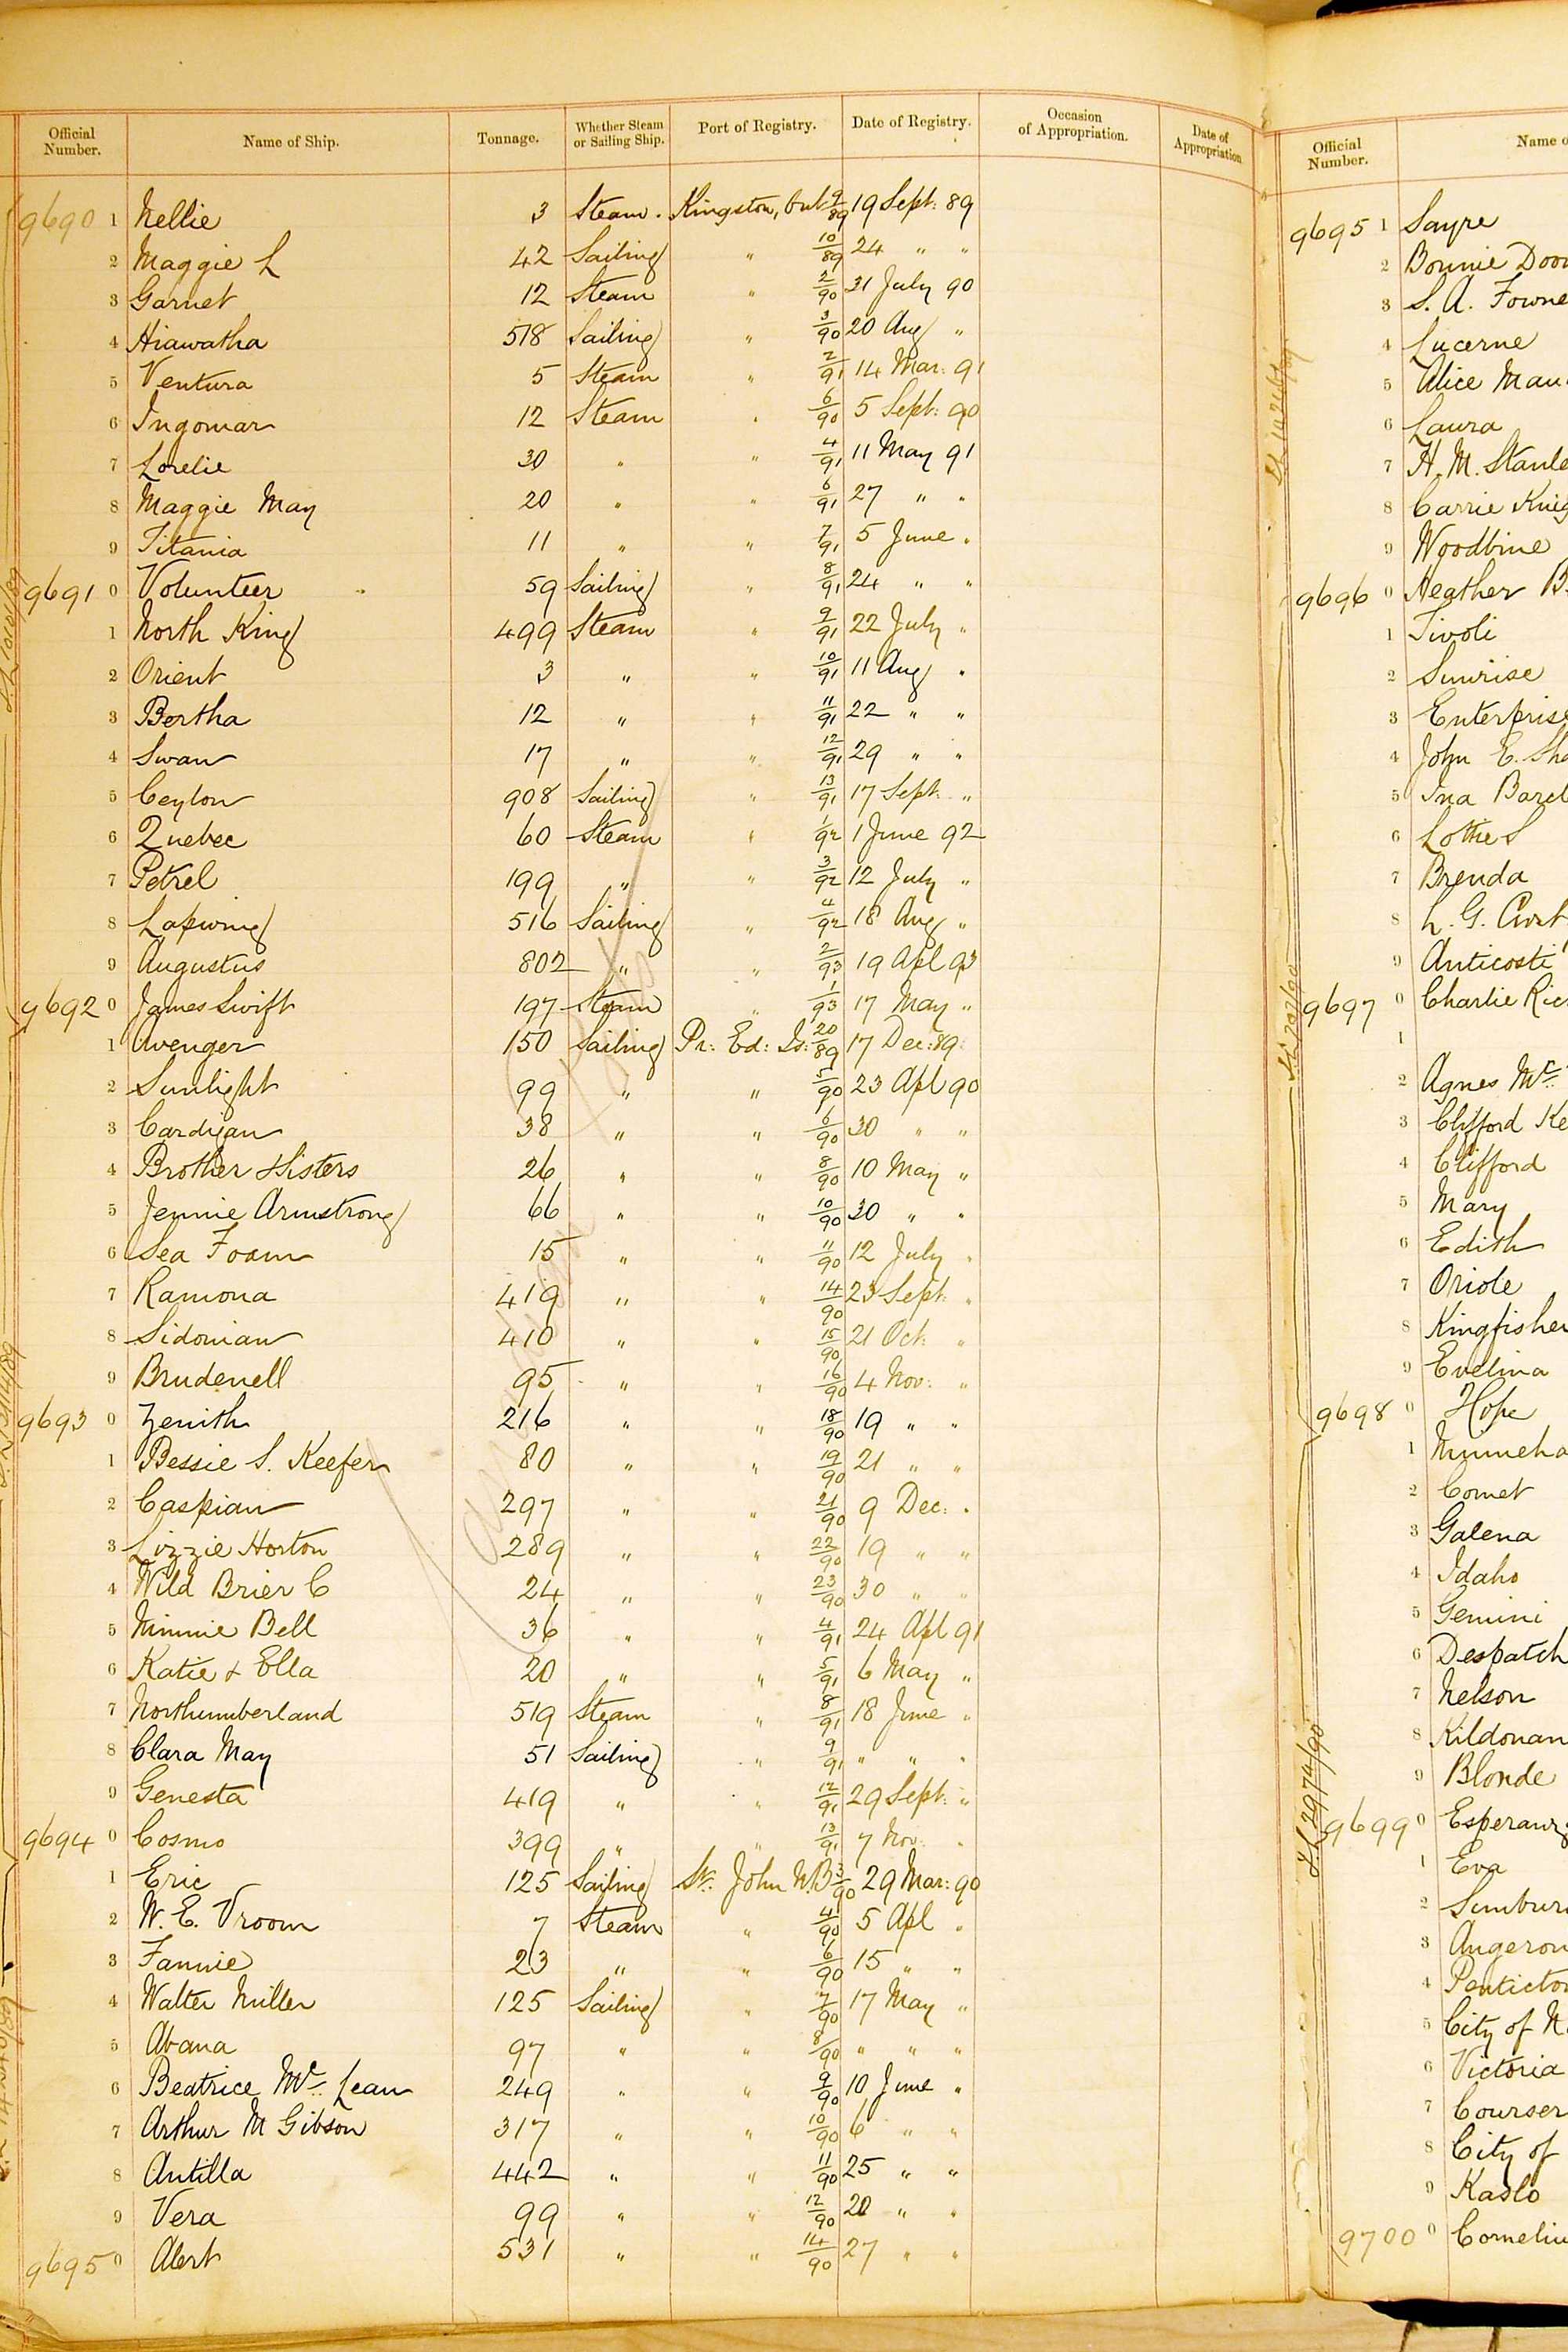 Official Number. Name of Ship. Tonnage. Whether Steam or Sailing Ship. Port of Registry. Date of Registry. Occasion of Appropriation. Date of Appropriation
9690 1 Nellie 3 Steam. Kingston, Ont 9/89 19 Sept: 89
2 Maggie L 42 Sailing " 10/89 24 " "
3 Garnet 12 Steam " 2/90 31 July 90
4 Hiawatha 518 Sailing " 3/90 20 Aug "
5 Ventura 5 Steam " 2/91 14 Mar: 91
6 Ingomar 12 Steam " 6/90 5 Sept: 90
7 Lorelie 30 " " 4/91 11 May 91
8 Maggie May 20 " " 6/91 27 " "
9 Titania 11 " " 7/91 5 June "
9691 0 Volunteer 59 Sailing " 8/91 24 " "
1 North King 499 Steam " 9/91 22 July "
2 Orient 3 " " 10/91 11 Aug "
3 Bertha 12 " " 11/91 22 " "
4 Swan 17 " " 12/91 29 " "
5 Ceylon 908 Sailing " 13/91 17 Sept: "
6 Quebec 60 Steam " 1/92 1 June 92
7 Petrel 199 " " 3/92 12 July "
8 Lapwing 516 Sailing " 4/92 18 Aug "
9 Augustus 802 " " 2/93 19 Apl 93
9692 0 James Swift 197 Steam " 1/93 17 May "
1 Avenger 150 Sailing Pr: Ed: Is: 20/89 17 Dec: 89
2 Sunlight 99 " " 5/90 23 Apl 90
3 Cardigan 38 " " 6/90 30 " "
4 Brother & Sisters 26 " " 8/90 10 May "
5 Jennie Armstrong 66 " " 10/90 30 " "
6 Sea Foam 15 " " 11/90 12 July "
7 Ramona 419 " " 14/90 23 Sept: "
8 Sidonian 410 " " 15/90 21 Oct: "
9 Brudenell 95 " " 16/90 4 Nov: "
9693 0 Zenith 216 " " 18/90 19 " "
1 Bessie S. Keefer 80 " " 19/90 21 " "
2 Caspian 297 " " 21/90 9 Dec: "
3 Lizzie Horton 289 " " 22/90 19 " "
4 Wild Brier C 24 " " 23/90 30 " "
5 Minnie Bell 36 " " 4/91 24 Apl 91
6 Katie & Ella 20 " " 5/91 6 May "
7 Northumberland 519 Steam " 8/91 18 June "
8 Clara May 51 Sailing " 9/91 " " "
9 Genesta 419 " " 12/91 29 Sept: "
9694 0 Cosmo 399 " " 13/91 7 Nov: "
1 Eric 125 Sailing St: John N.B 3/90 29 Mar: 90
2 W. E. Vroom 7 Steam " 4/90 5 Apl "
3 Fannie 23 " " 6/90 15 " "
4 Walter Miller 125 Sailing " 7/90 17 May "
5 Abana 97 " " 8/90 " " "
6 Beatrice Mc Lean 249 " " 9/90 10 June "
7 Arthur M Gibson 317 " " 10/90 6 " "
8 Antilla 442 " " 11/90 25 " "
9 Vera 99 " " 12/90 20 " "
9695 0 Alert 531 " " 14/90 27 " "
Official Number. Name
9695 1 Sayre
2 Bonnie Doo
3 S. A. Fowne
4 Lucerne
5 Alice Mau
6 Laura
7 H. M. Stanle
8 Carrie Knig
9 Woodbine
9696 0 Heather B
1 Tivoli
2 Sunrise
3 Enterprise
4 John E. Sha
5 Ina
6 Lottie S
7 Brenda
8 L. G.
9 Anticosti
9697 0 Charlie Ric
1
2 Agnes Mc
3 Clifford Ke
4 Clifford
5 Mary
6 Edith
7 Oriole
8 Kingfisher
9 Evelina
9698 0 Hope
1 Minneha
2 Comet
3 Galena
4 Idaho
5 Gemini
6 Despatch
7 Nelson
8 Kildonan
9 Blonde
9699 0 Esperanz
1 Eva
2 Sunbur
3 Angeron
4 Penticton
5 City of N
6 Victoria
7 Courser
8 City of
9 Kaslo
9700 0 Corneliu